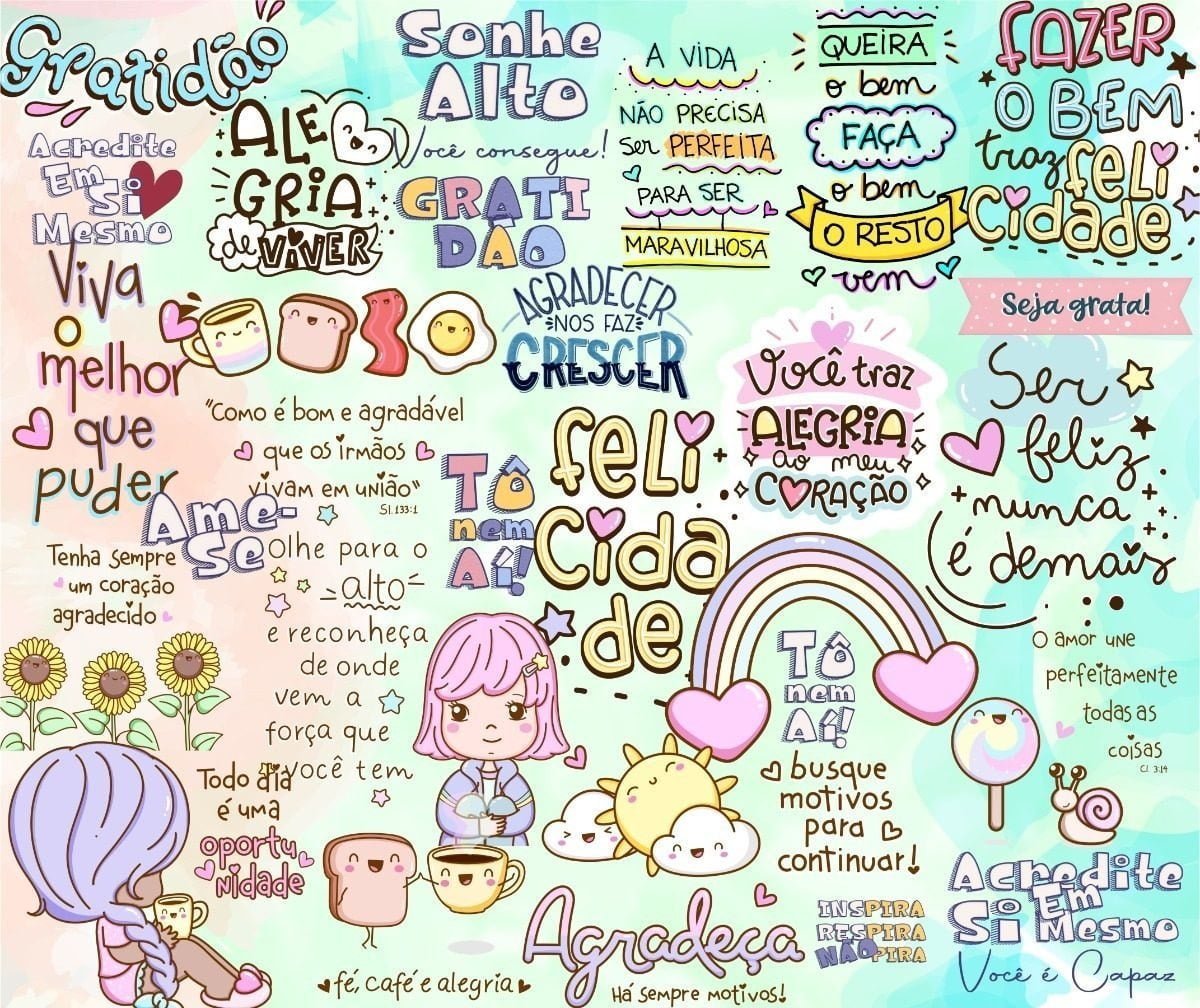 Gratidão
Acredite
Em
Si
Mesmo
ALE
GRIA
de VIVER
Sonhe
Alto
Você consegue!
GRATI
DÃO
A VIDA
NÃO PRECISA
Ser PERFEITA
PARA SER
MARAVILHOSA
QUEIRA
o bem
FAÇA
o bem
O RESTO
vem
FAZER
O BEM
traz feli
Cidade
Seja grata!
Viva
o
melhor
que
puder
AGRADECER
NOS FAZ
CRESCER
Você traz
ALEGRIA
ao meu
CORAÇÃO
Ser
feliz
nunca
é demais
"Como é bom e agradável
que os irmãos
vivam em união"
Sl. 133:1
Tô
nem
Aí!
feli
Cida
de
Ame-
Se
Tenha sempre
um coração
agradecido
Olhe para o
alto
e reconheça
de onde
vem a
força que
você tem
Tô
nem
Aí!
O amor une
perfeitamente
todas as
coisas
Cl 3:14
Todo dia
é uma
oportu
nidade
busque
motivos
para
continuar!
fé, café e alegria
Agradeça
Há sempre motivos!
INSPIRA
RESPIRA
NÃO PIRA
Acredite
Em
Si Mesmo
Você é Capaz